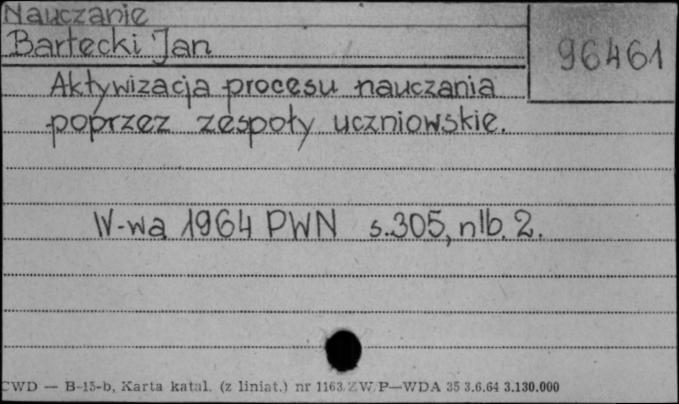 Nauczanie
Bartecki Jan
96461
Aktywizacja procesu nauczania
poprzez zespoły uczniowskie.
W-wa 1964 PWN s.305, nlb. 2.
CWD — B-15-b, Karta katal. (z liniat.) nr 1163. ZW/P—WDA 35 3.6.64 3.130.000